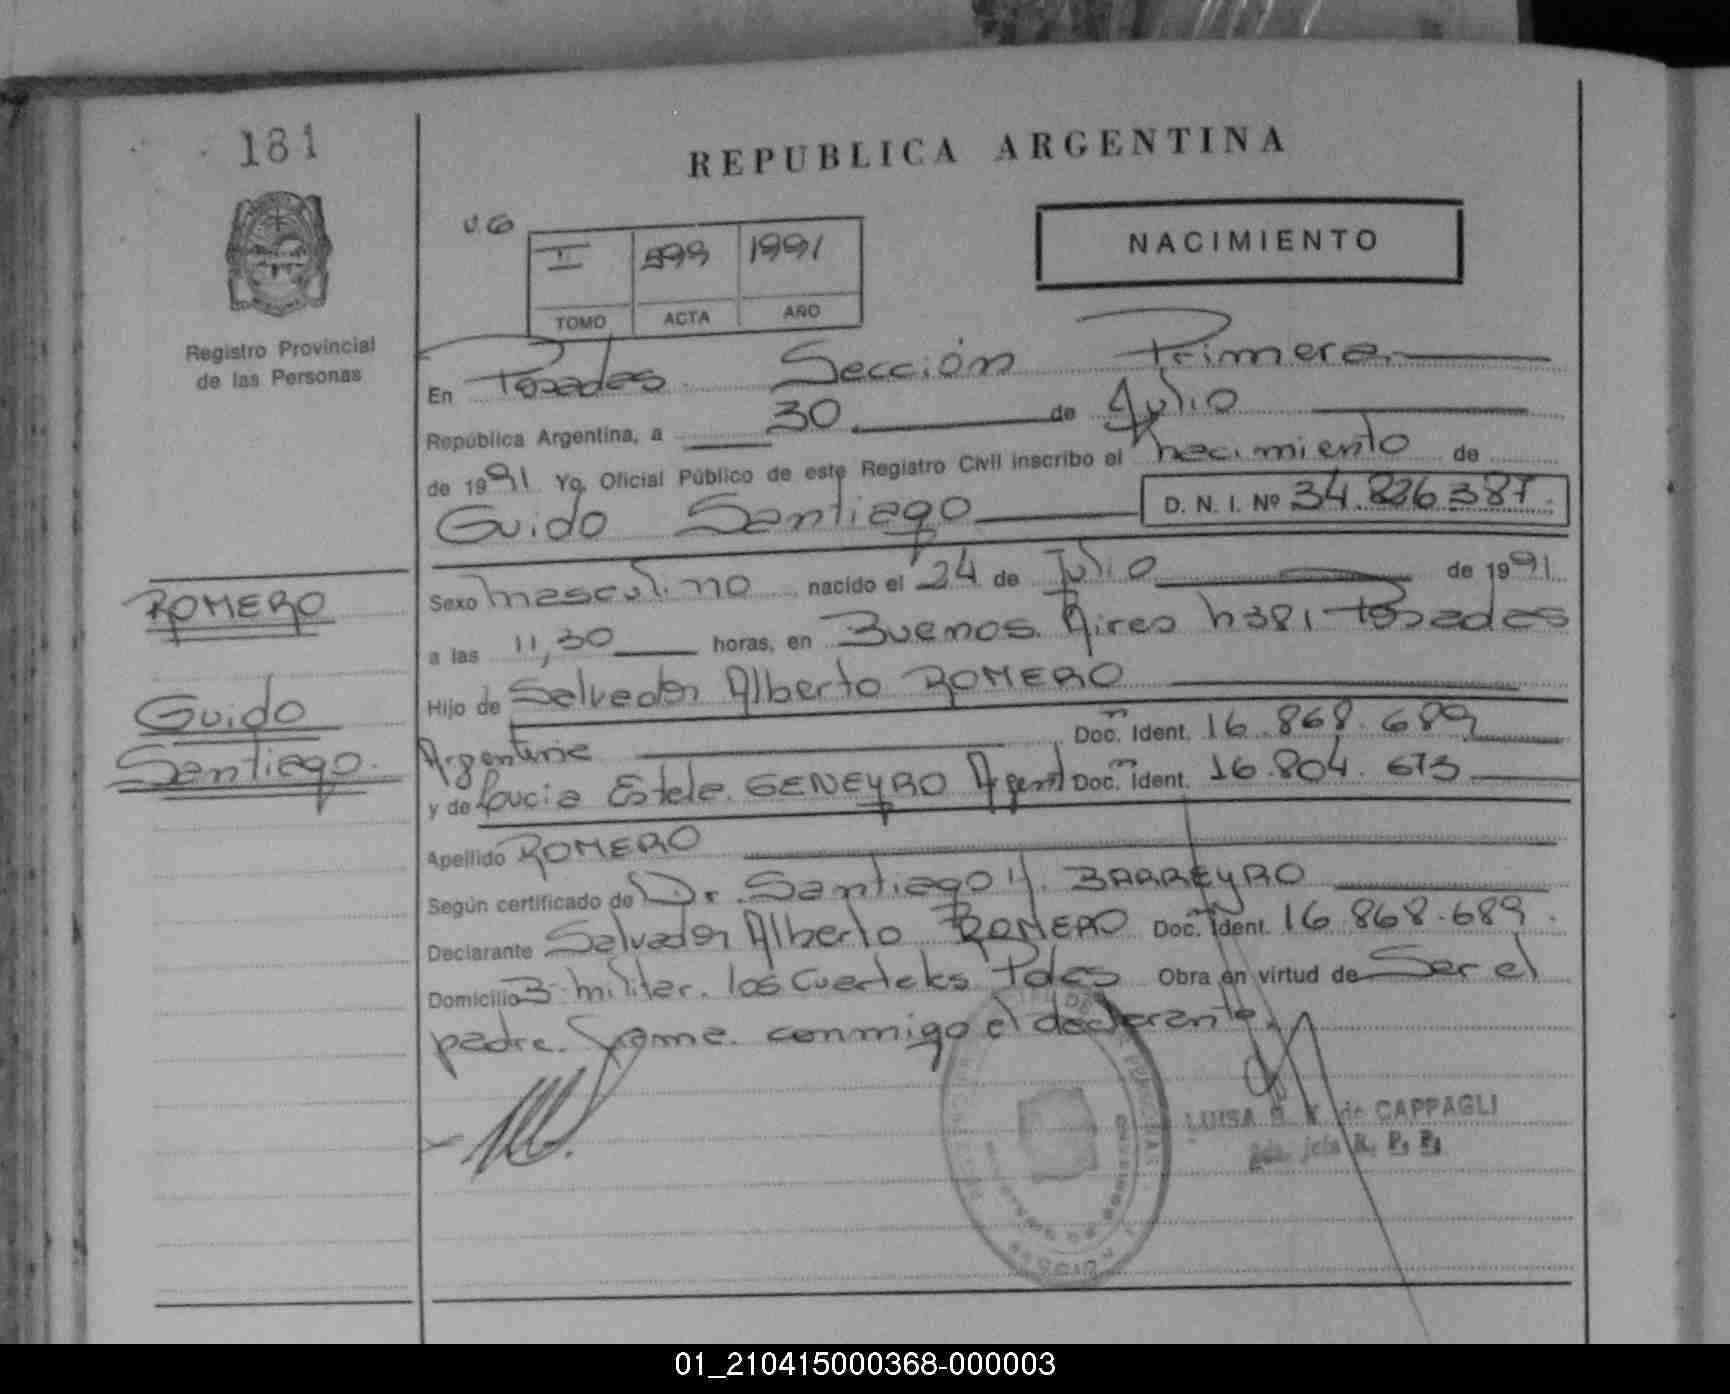 181
REPUBLICA ARGENTINA
Registro Provincial
de las Personas
NACIMIENTO
II 599 1991
TOMO ACTA AÑO
En Posadas Sección Primera
República Argentina, a 30 de Julio
de 1991 Yo, Oficial Público de este Registro Civil inscribo el nacimiento de
Guido Santiago D. N. I. Nº 34.826.387.
ROMERO
Guido
Santiago.
Sexo masculino nacido el 24 de Julio de 1991
a las 11,30 horas, en Buenos Aires n381 Posadas
Hijo de Salvador Alberto ROMERO
Argentina Doc. Ident. 16.868.689
y de Lucia Estela GENEYRO Argent Doc. Ident. 16.804.673
Apellido ROMERO
Según certificado de Dr. Santiago BARREYRO
Declarante Salvador Alberto ROMERO Doc. Ident. 16.868.689.
Domicilio B militar. los Cuarteles Pdas Obra en virtud de Ser el
padre. Firma conmigo el declarante.
LUISA de CAPPAGLI
jefa R. P. P.
01_210415000368-000003